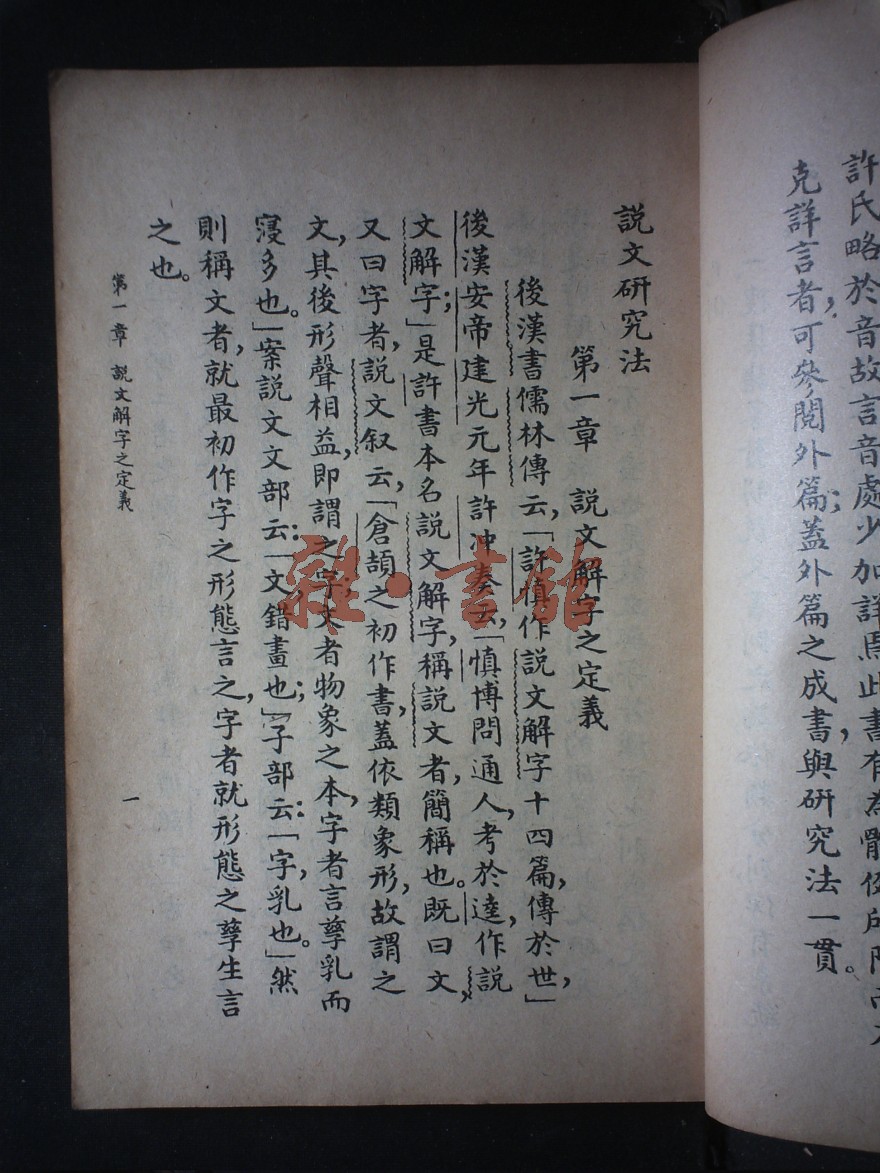 許氏略於音故言音處少加詳焉此書有為
克詳言者,可參閱外篇;蓋外篇之成書,與研究法一貫。
說文研究法
第一章 說文解字之定義
後漢書儒林傳云,「許慎作說文解字十四篇,傳於世,」
後漢安帝建光元年許沖奏云,「慎博問通人,考於逵,作說
文解字;」是許書本名說文解字,稱說文者,簡稱也。既曰文,
又曰字者,說文叙云,「倉頡之初作書,蓋依類象形,故謂之
文,其後形聲相益,即謂之字;文者物象之本,字者言孳乳而
寖多也。」案說文文部云:「文,錯畫也;」子部云:「字,乳也。」然
則稱文者,就最初作字之形態言之,字者就形態之孳生言
之也。
第一章 說文解字之定義
一
雜·書館